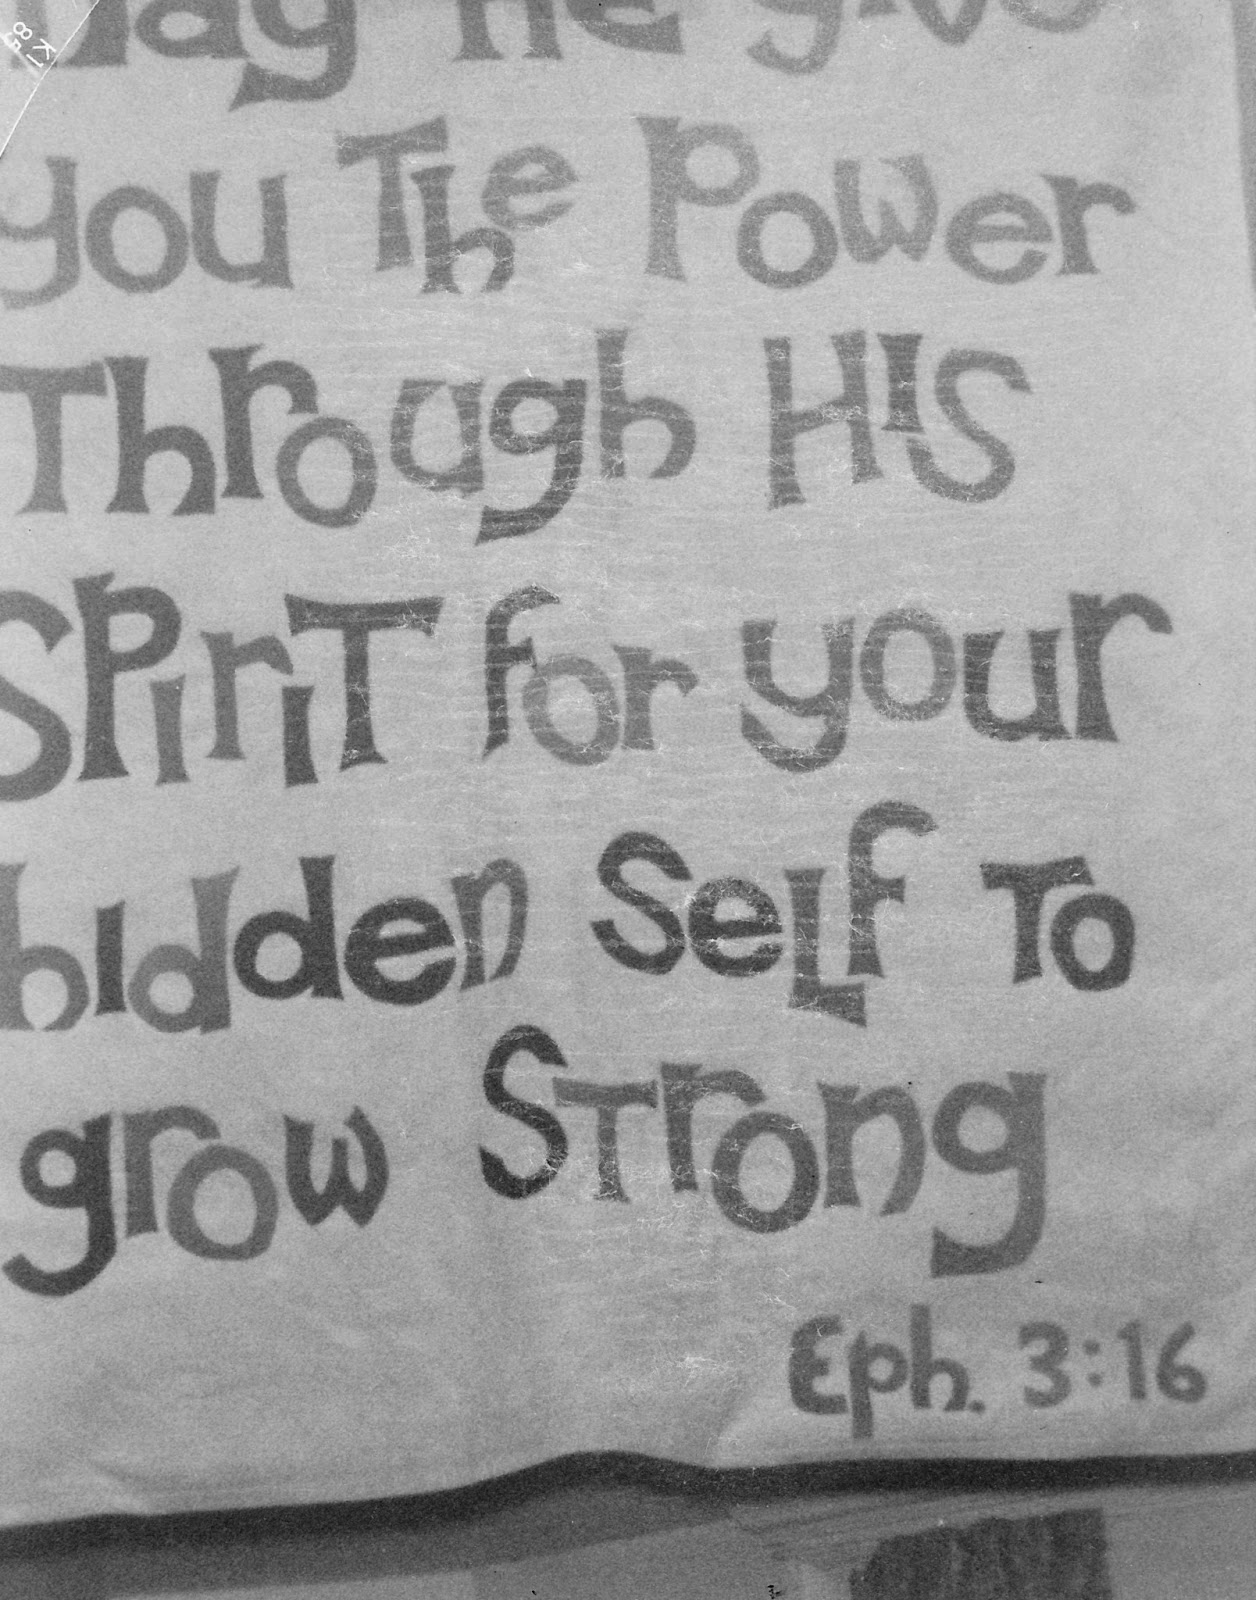 May He give
you The Power
Through HIS
SPiriT for your
hidden SeLf To
grow STrong
Eph. 3:16